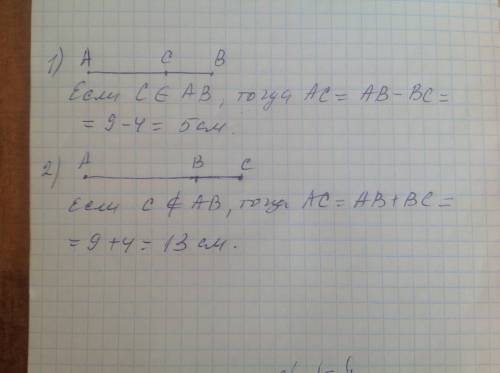 1) A C B
Если C ∈ AB, тогда AC = AB - BC =
= 9 - 4 = 5 см.
2) A B C
Если C ∉ AB, тогда AC = AB + BC =
= 9 + 4 = 13 см.